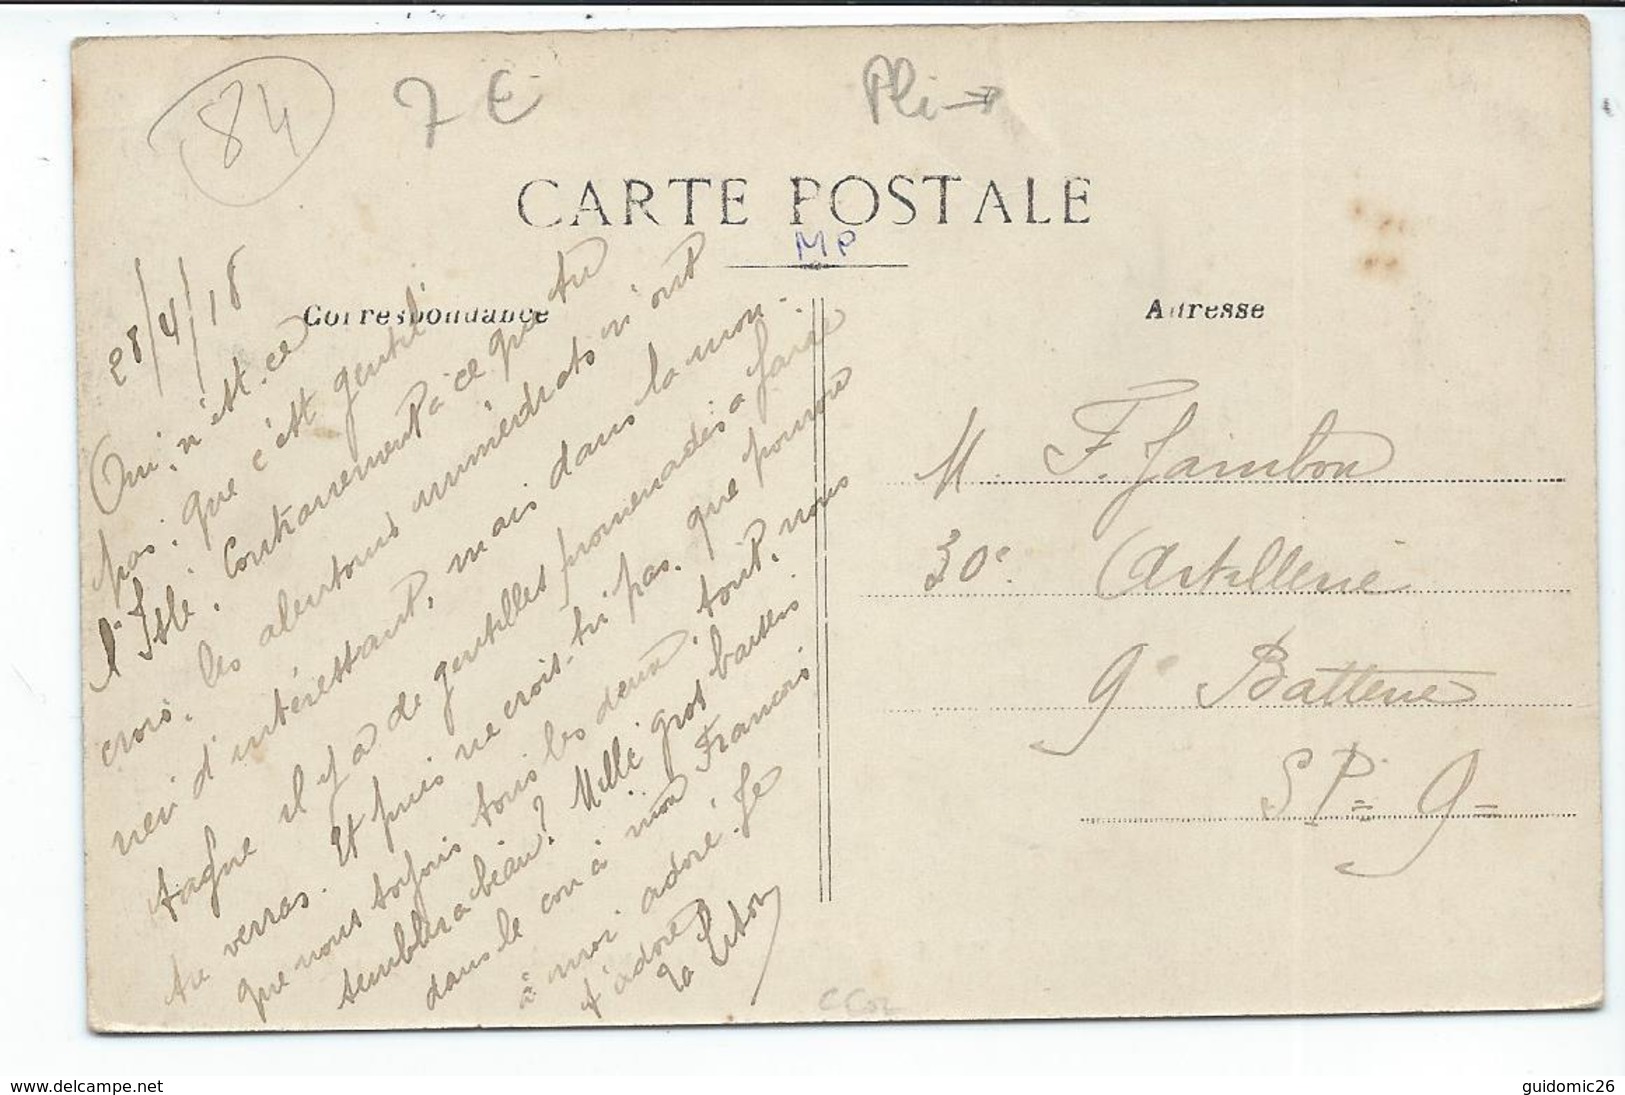 84
7 E
Pli →
CARTE POSTALE
MP
Correspondance
Adresse
28/4/18
Oui, n'est-ce
pas, que c'est gentil
l'Isle. Contrairement à ce que tu
crois, les alentours immédiats n'ont
rien d'intéressant, mais dans la mon-
tagne il y a de gentilles promenades à faire
tu verras. Et puis ne crois-tu pas, que pourvu
que nous soyons tous les deux, tout, nous
semblera beau? Mille gros baisers
dans le cou à mon François
à moi adoré. Je
t'adore
ta Ziton
M. F. Jambon
30e Artillerie
9e Batterie
S.P= 9=
www.delcampe.net
guidomic26